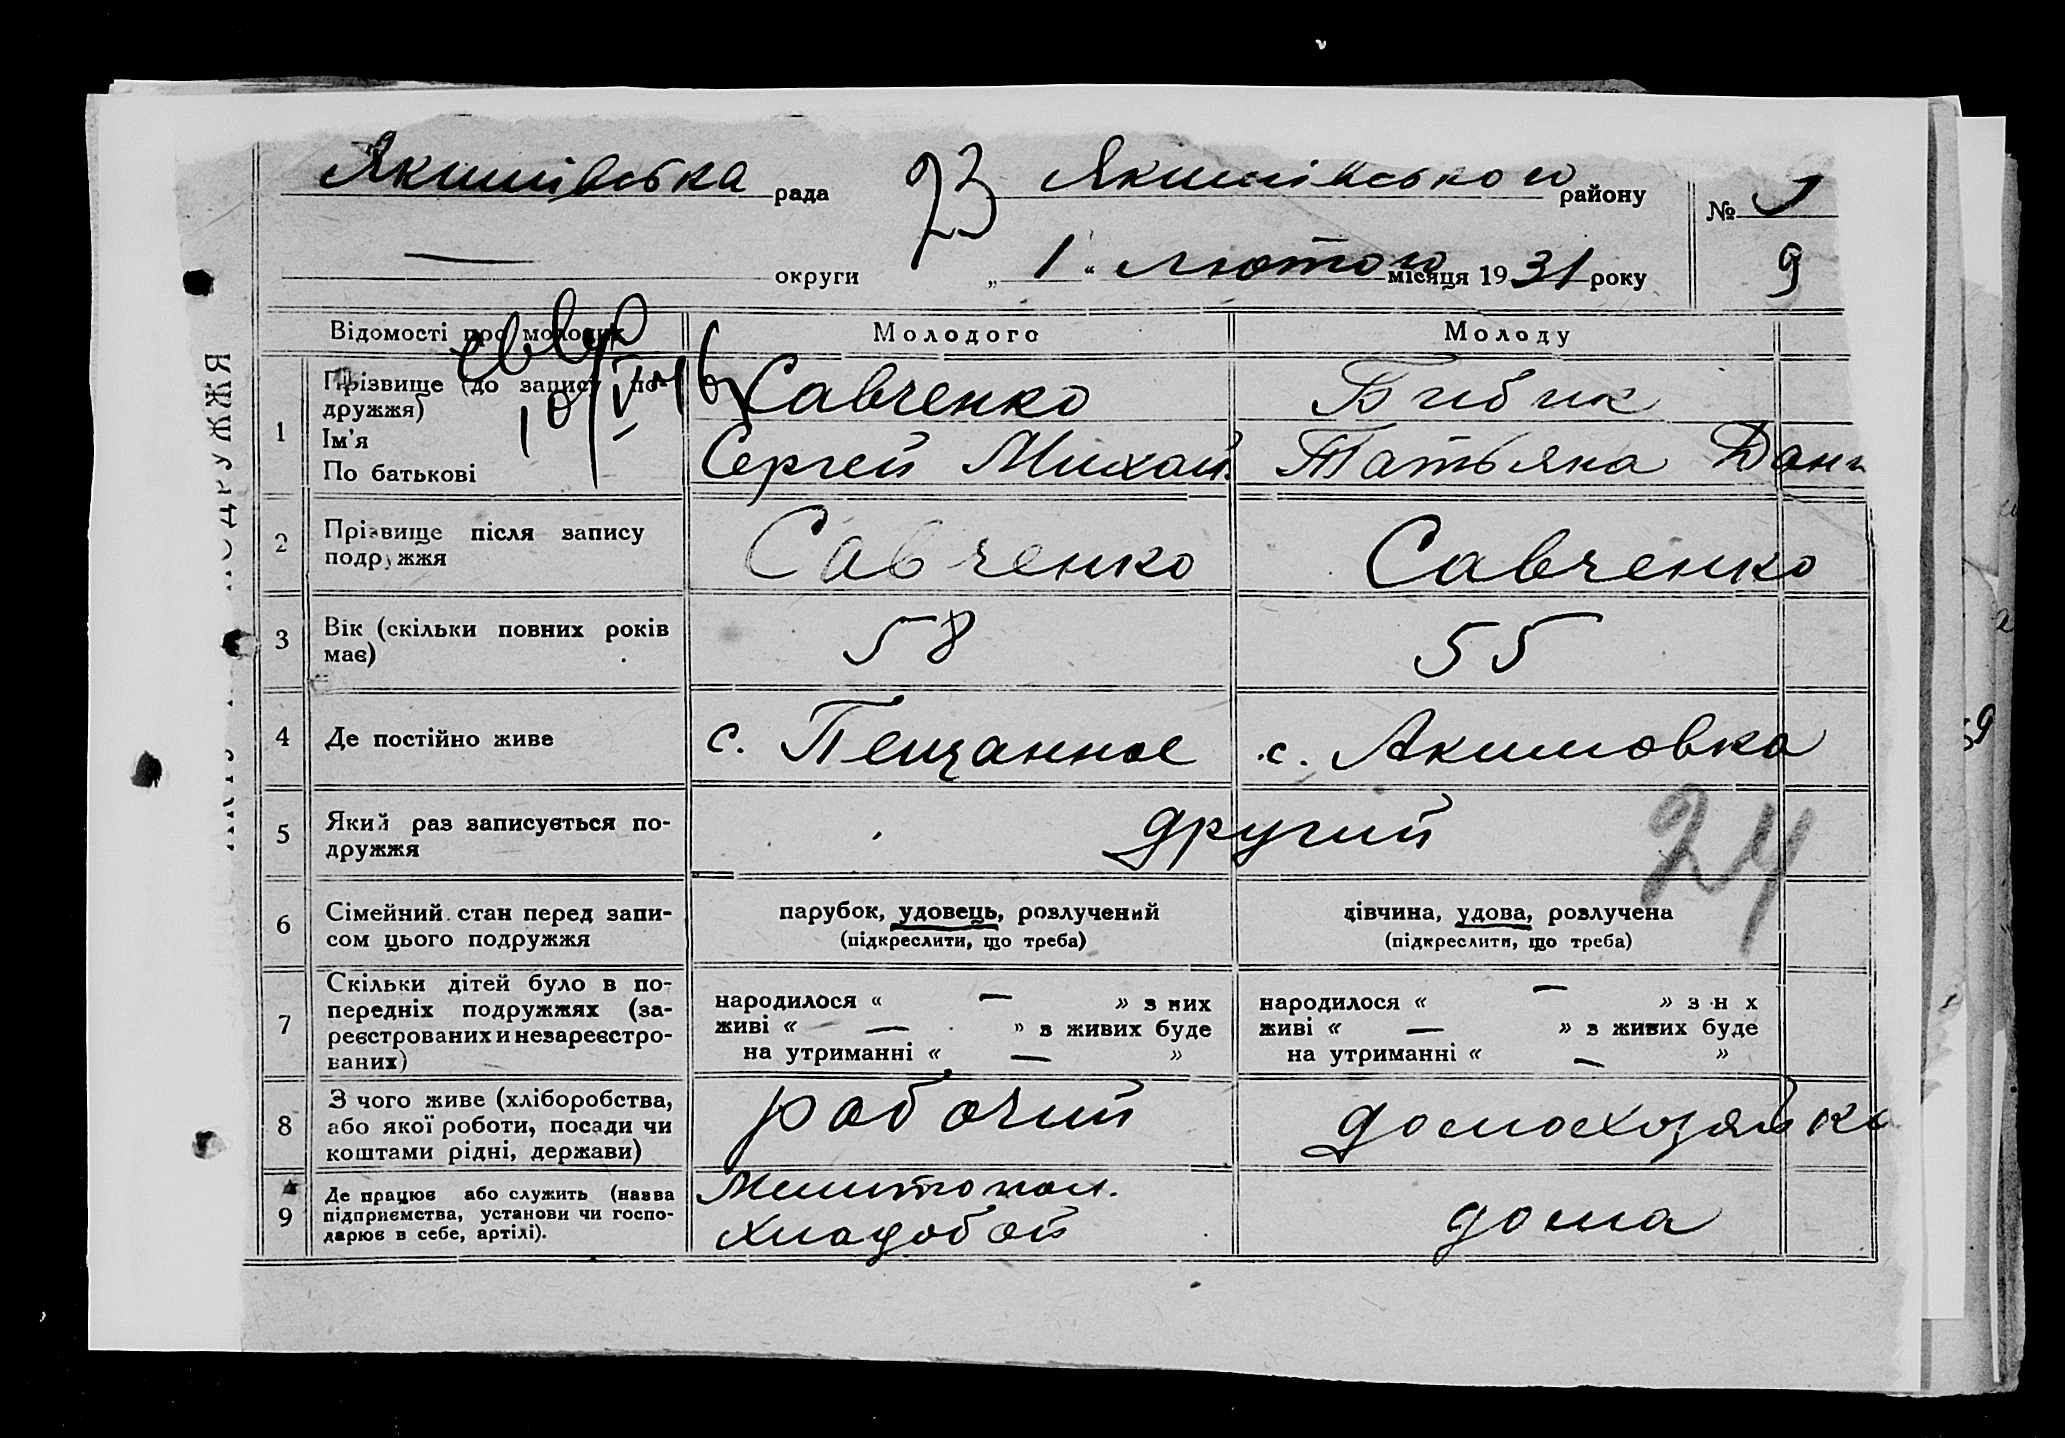 Якимівська рада 23 Якимівського району №
— округи „ 1 “ лютого місяця 1931 року 9
ПОДРУЖЖЯ
Відомості про молодих Молодого Молоду
1 Прізвище (до запису по-
дружжя) Савченко Бибик
10/V-46
Ім'я
По батькові Сергей Михай. Татьяна Дани
2 Прізвище після запису
подружжя Савченко Савченко
3 Вік (скільки повних років
має) 58 55
4 Де постійно живе с. Пещанное с. Акимовка
5 Який раз записується по-
дружжя другий
24
6 Сімейний стан перед запи-
сом цього подружжя
парубок, удовець, розлучений
(підкреслити, що треба)
дівчина, удова, розлучена
(підкреслити, що треба)
7 Скільки дітей було в по-
передніх подружжях (за-
реєстрованих и незареєстро-
ваних)
народилося « — » з них
живі « — » з живих буде
на утриманні « — »
народилося « — » з н х
живі « — » з живих буде
на утриманні « — »
8 З чого живе (хліборобства,
або якої роботи, посади чи
коштами рідні, держави)
рабочий домохозяйка
9 Де працює або служить (назва
підприємства, установи чи госпо-
дарює в себе, артілі).
Мелитопол.
Хладобой
дома